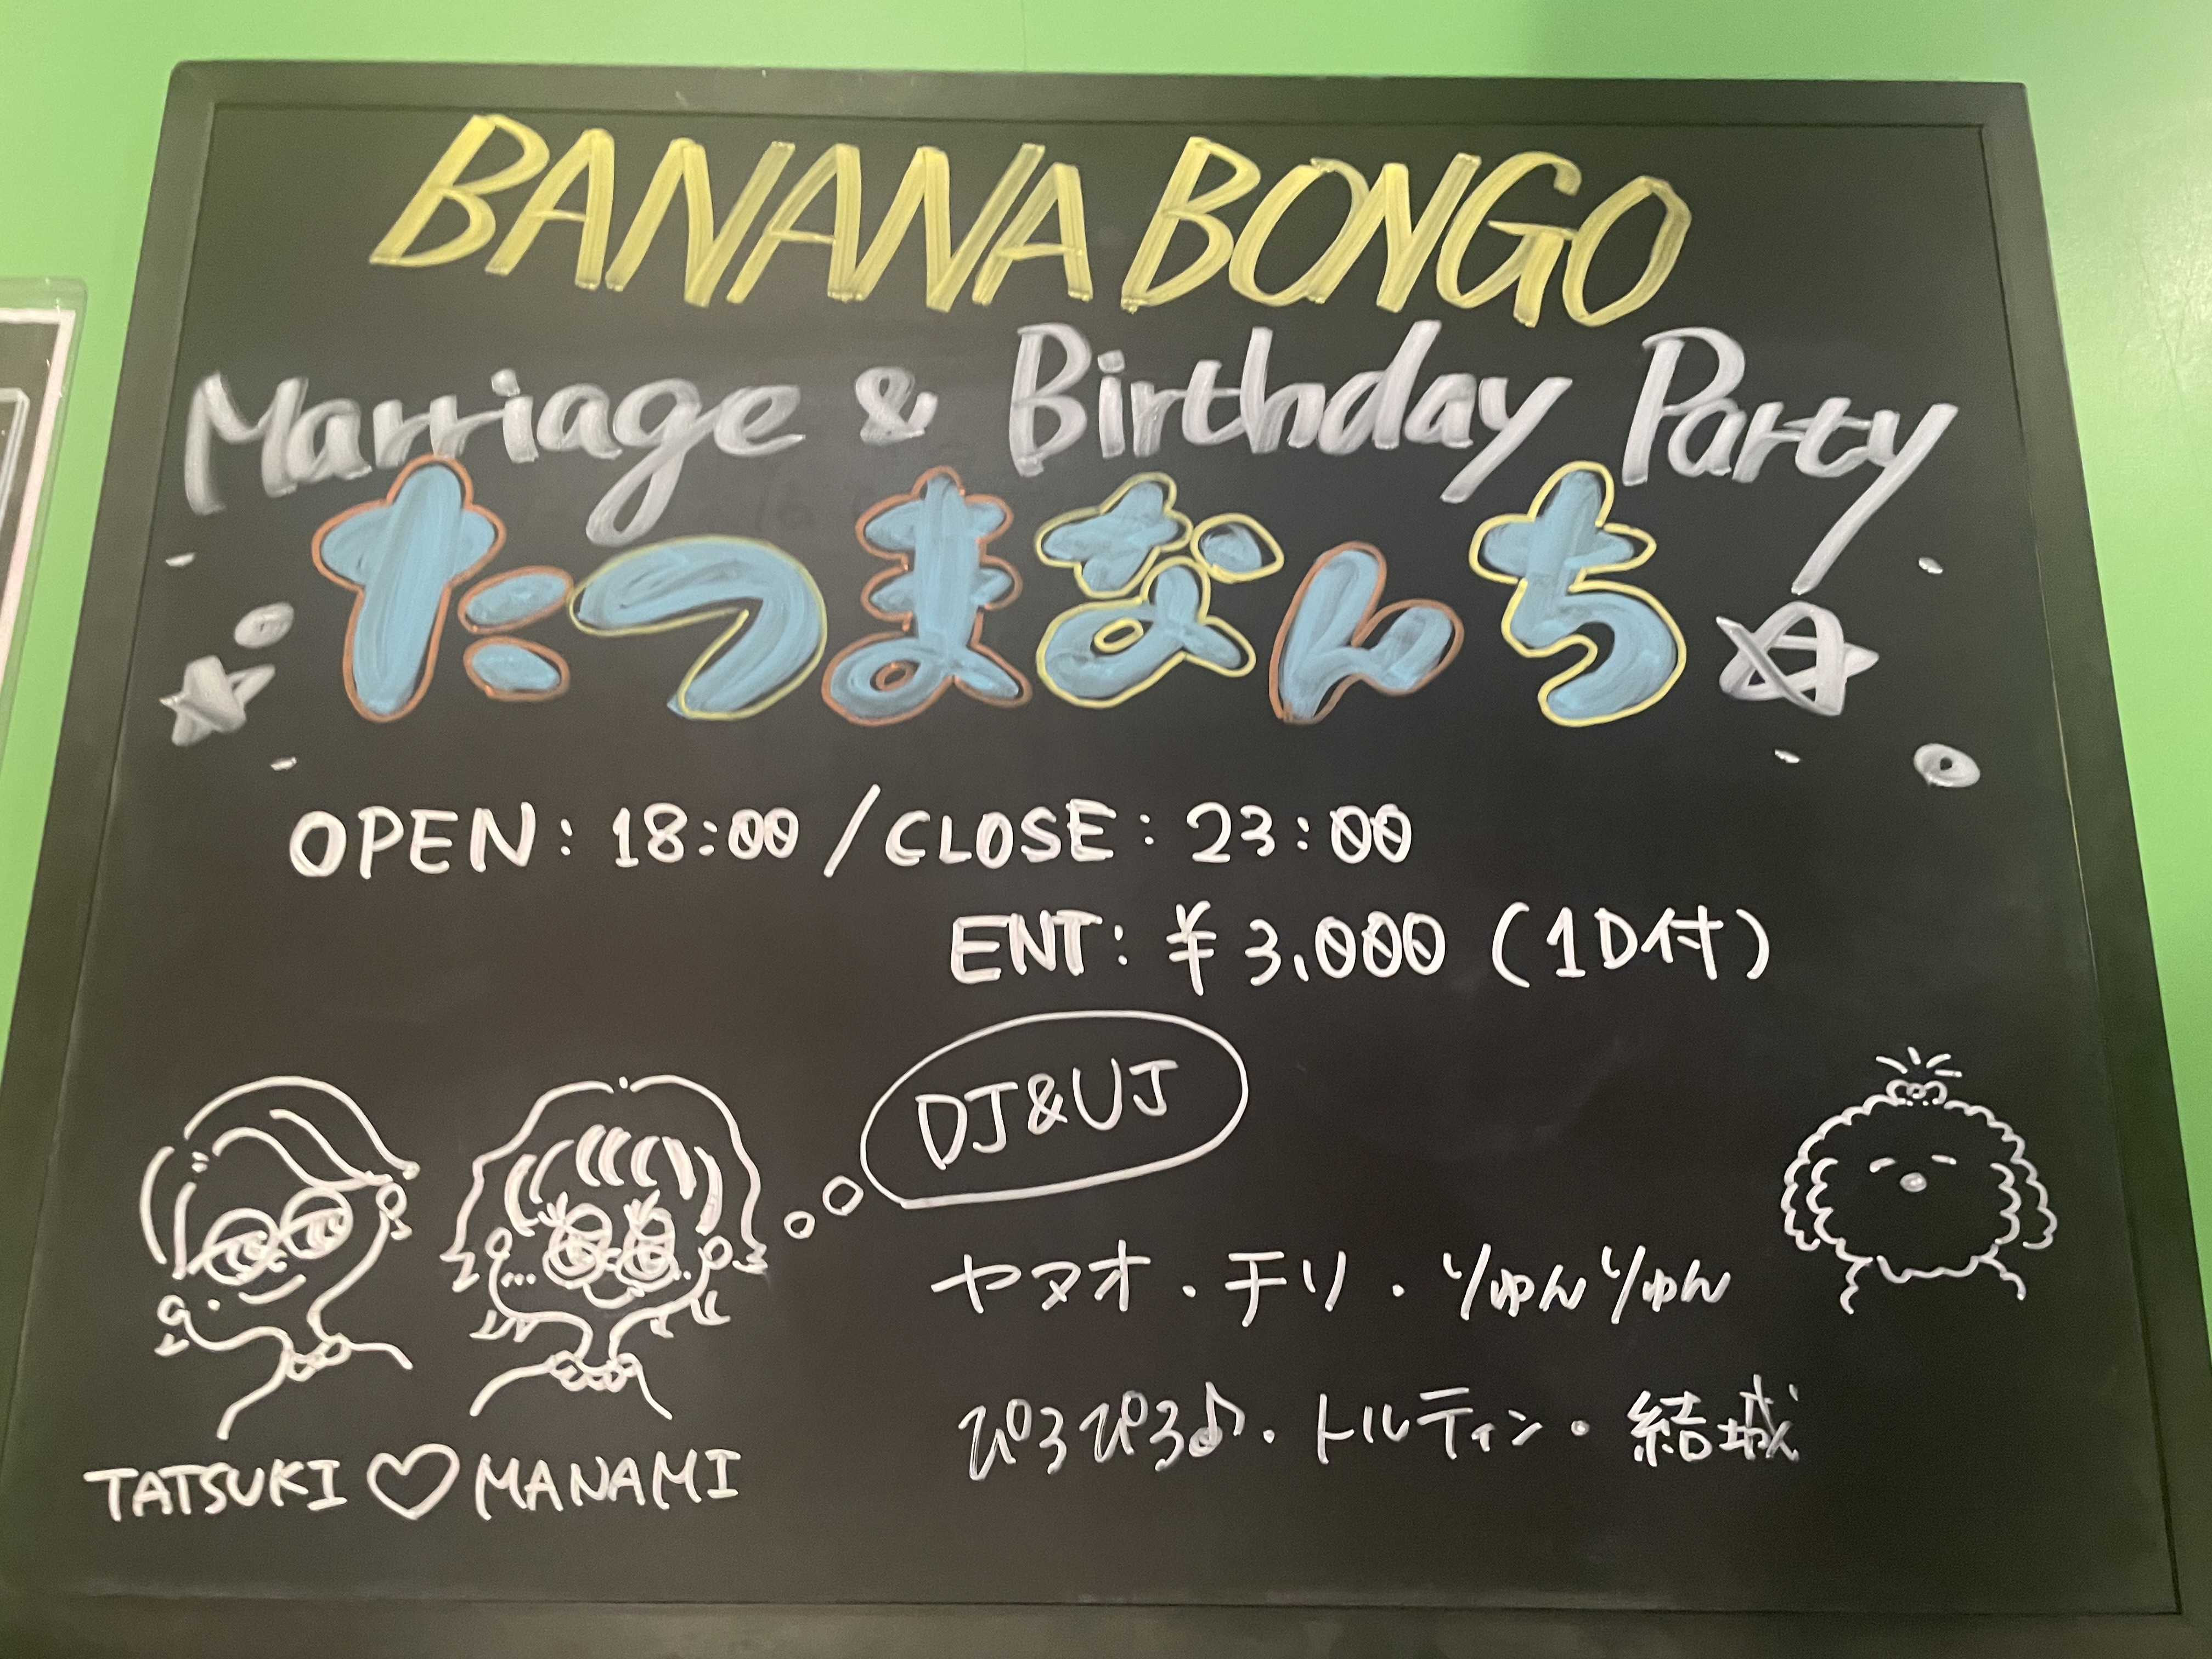 BANANA BONGO
Marriage & Birthday Party
たつまなんち
OPEN: 18:00 / CLOSE: 23:00
ENT: ¥3,000 (1D付)
DJ&VJ
ヤヌオ・チリ・りゅんりゅん
ぴろぴろ♪・トルティン・結城
TATSUKI ♡ MANAMI